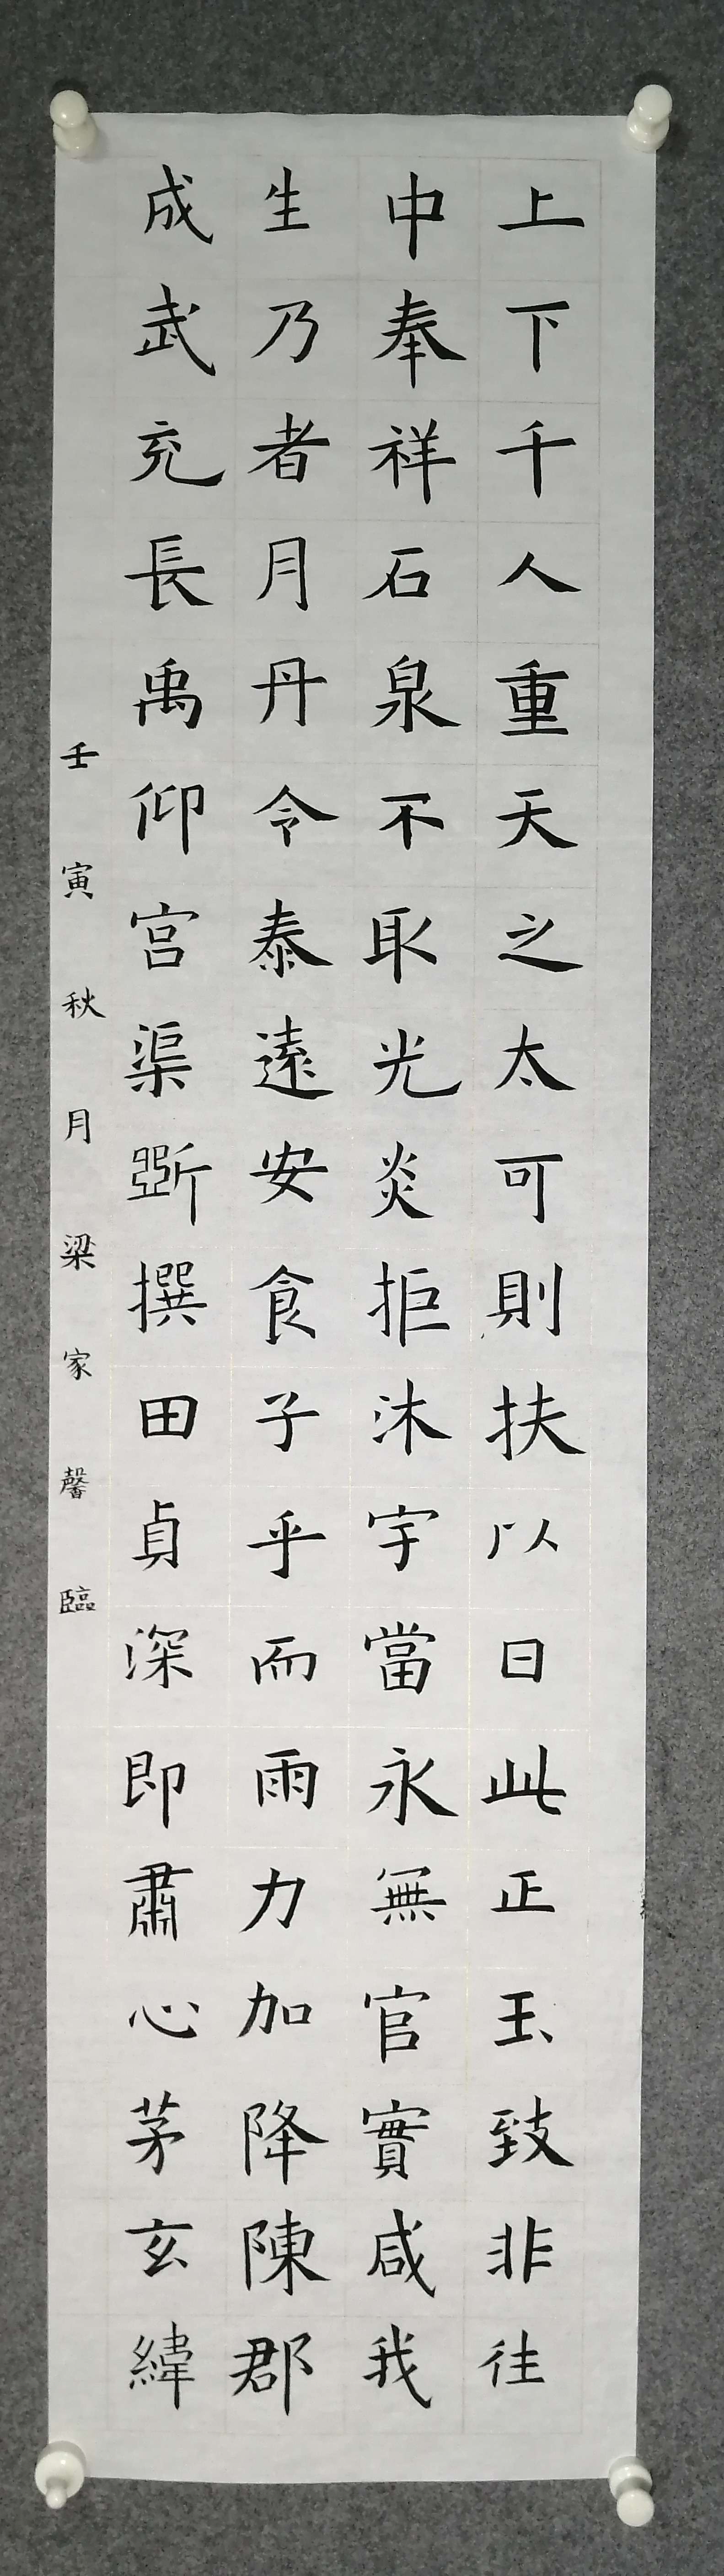 上下千人重天之太可則扶以日此正玉致非往
中奉祥石泉不取光炎拒沐宇當永無官實咸我
生乃者月丹令泰遠安食子乎而雨力加降陳郡
成武充長禹仰宫渠斲撰田貞深即肅心茅玄緯
壬寅秋月梁家馨臨